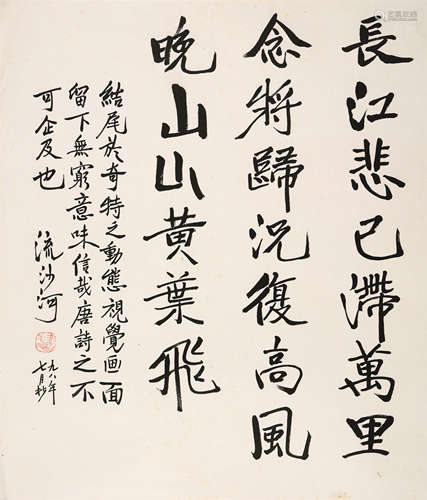 長江悲已滯萬里
念將歸況復高風
晚山山黃葉飛
結尾於奇特之動態視覺画面
留下無窮意味信哉唐詩之不
可企及也
流沙河
一九九八年
七月抄